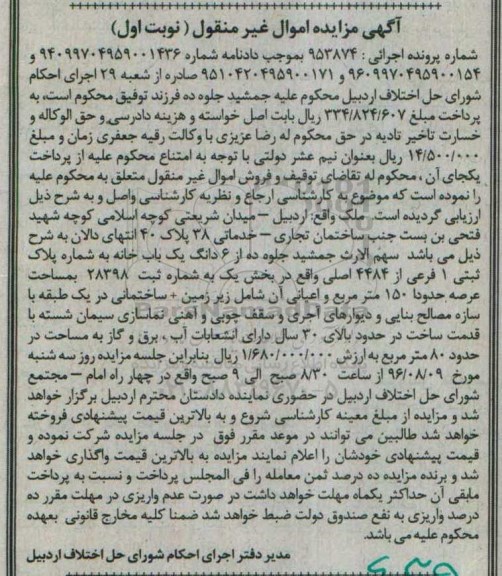 آگهی مزایده اموال غیر منقول ( نوبت اول)
شماره پرونده اجرائی : ۹۵۳۸۷۴ بموجب دادنامه شماره ۹۴۰۹۹۷۰۴۹۵۹۰۰۱۴۳۶ و
۹۶۰۹۹۷۰۴۹۵۹۰۰۱۵۴ و ۹۵۱۰۴۲۰۴۹۵۹۰۰۱۷۱ صادره از شعبه ۲۹ اجرای احکام
شورای حل اختلاف اردبیل محکوم علیه جمشید جلوه ده فرزند توفیق محکوم است، به
پرداخت مبلغ ۳۳۴/۸۲۴/۶۰۷ ریال بابت اصل خواسته و هزینه دادرسی و حق الوکاله و
خسارت تاخیر تادیه در حق محکوم له رضا عزیزی با وکالت رقیه جعفری زمان و مبلغ
۱۴/۵۰۰/۰۰۰ ریال بعنوان نیم عشر دولتی با توجه به امتناع محکوم علیه از پرداخت
یکجای آن ، محکوم له تقاضای توقیف و فروش اموال غیر منقول متعلق به محکوم علیه
را نموده است که موضوع به کارشناسی ارجاع و نظریه کارشناسی واصل و به شرح ذیل
ارزیابی گردیده است. ملک واقع: اردبیل – میدان شریعتی کوچه اسلامی کوچه شهید
فتحی بن بست جنب ساختمان تجاری – خدماتی ۳۸ پلاک ۴۰ انتهای دالان به شرح
ذیل می باشد سهم الارث جمشید جلوه ده از ۶ دانگ یک باب خانه به شماره پلاک
ثبتی ۱ فرعی از ۴۴۸۴ اصلی واقع در بخش یک به شماره ثبت ۲۸۳۹۸ بمساحت
عرصه حدودا ۱۵۰ متر مربع و اعیانی آن شامل زیر زمین + ساختمانی در یک طبقه با
سازه مصالح بنایی و دیوارهای آجری و سقف چوبی و آهنی نماسازی سیمان شسته با
قدمت ساخت در حدود بالای ۳۰ سال دارای انشعابات آب ، برق و گاز به مساحت در
حدود ۸۰ متر مربع به ارزش ۱/۶۸۰/۰۰۰/۰۰۰ ریال بنابراین جلسه مزایده روز سه شنبه
مورخ ۹۶/۰۸/۰۹ از ساعت ۸/۳۰ صبح الی ۹ صبح واقع در چهار راه امام – مجتمع
شورای حل اختلاف اردبیل در حضوری نماینده دادستان محترم اردبیل برگزار خواهد
شد و مزایده از مبلغ معینه کارشناسی شروع و به بالاترین قیمت پیشنهادی فروخته
خواهد شد طالبین می توانند در موعد مقرر فوق در جلسه مزایده شرکت نموده و
قیمت پیشنهادی خودشان را اعلام نمایند مزایده به بالاترین قیمت واگذاری خواهد
شد و برنده مزایده ده درصد ثمن معامله را فی المجلس پرداخت و نسبت به پرداخت
مابقی آن حداکثر یکماه مهلت خواهد داشت در صورت عدم واریزی در مهلت مقرر ده
درصد واریزی به نفع صندوق دولت ضبط خواهد شد ضمنا کلیه مخارج قانونی بعهده
محکوم علیه می باشد.
مدیر دفتر اجرای احکام شورای حل اختلاف اردبیل